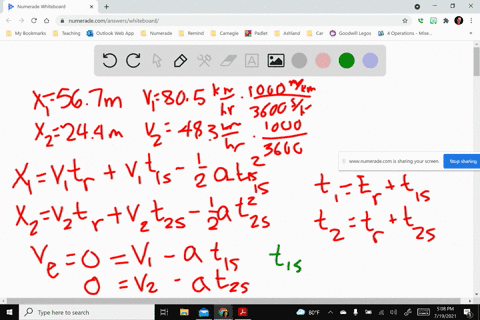 Numerade Whiteboard
numerade.com/answers/whiteboard/
My Bookmarks Teaching Outlook Web App Numerade Remind Carnegie Padlet Ashland Card Goodwill Legos 4 Operations - Mixe...
x₁=56.7m v₁=80.5 km/hr · 1000 m/km / 3600 s/hr
x₂=24.4m v₂=48.3 /hr · 1000/3600
x₁=v₁tᵣ+v₁t₁ₛ-1/2 at₁ₛ²
1s
x₂=v₂tᵣ+v₂t₂ₛ-1/2 at₂ₛ²
vₑ=0=v₁-at₁ₛ t₁ₛ
0=v₂-at₂ₛ
t₁=tᵣ+t₁ₛ
t₂=tᵣ+t₂ₛ
www.numerade.com is sharing your screen. Stop sharing
Type here to search
80°F
5:08 PM
7/19/2021